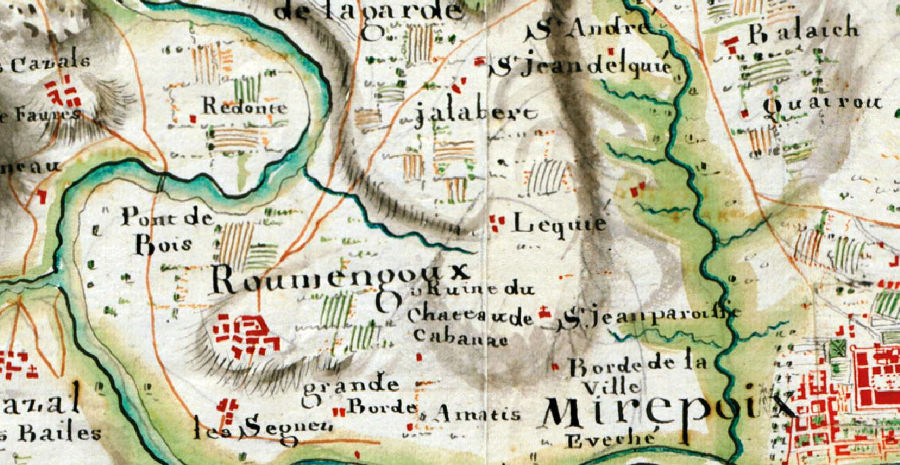 de lagarde
St. André
Balaich
St. jean delquié
s Cazals
Redonte
jalabert
Quairou
Faures
Pont de
Bois
Lequie
Roumengoux
Ruine du
Chateau de
Cabanae
St. jean paroisse
Borde de la
Ville
grande
Borde
Amatis
Mirepoix
Eveché
les Segneu
azal
s Bailes